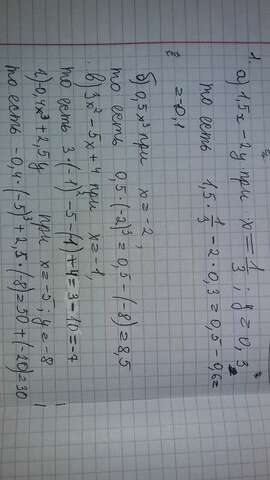 1. а) 1,5х - 2у при х = 1/3 ; у = 0,3
то есть 1,5 · 1/3 - 2 · 0,3 = 0,5 - 0,6 =
= -0,1
б) 0,5х³ при х = -2;
то есть 0,5 · (-2)³ = 0,5 - (-8) = 8,5
в) 3х² - 5х + 4 при х = -1,
то есть 3 · (-1)² - 5 - (1) + 4 = 3 - 10 = -7
г) 0,4х³ + 2,5у при х = -5; у = -8
то есть -0,4 · (-5)³ + 2,5 · (-8) = 50 + (-20) = 30